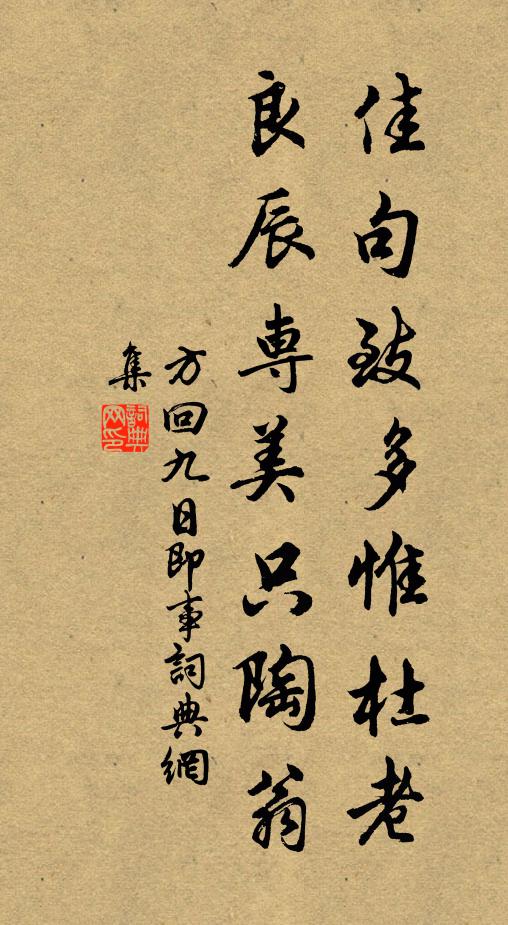 佳句致多惟杜老
良辰專美只陶翁
方回九日即事詞典網
集
詞典网印